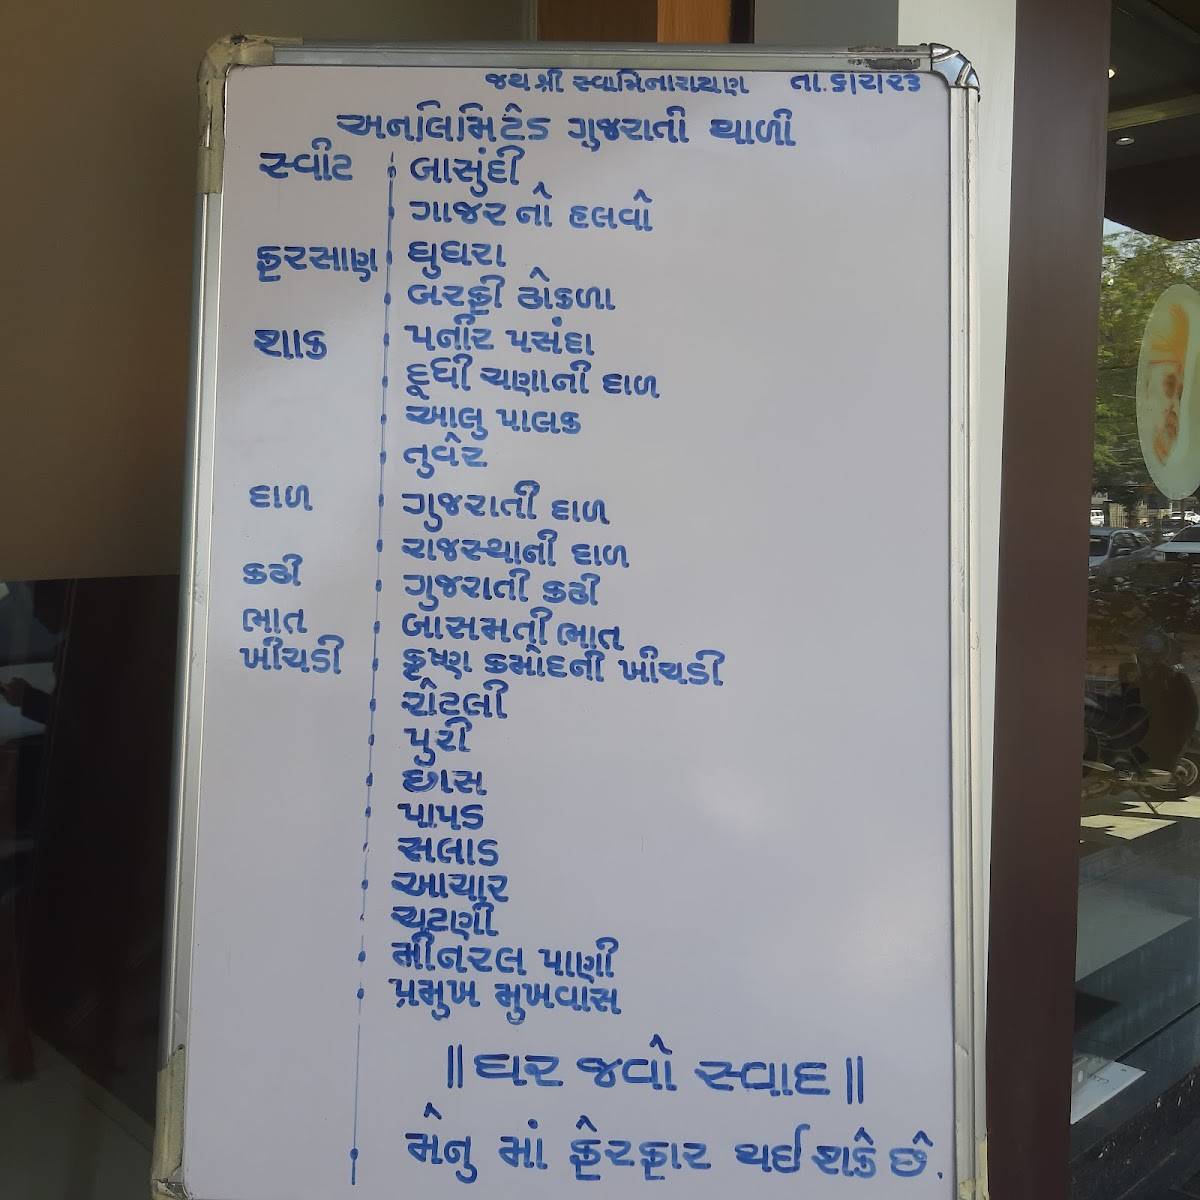 જય શ્રી સ્વામિનારાયણ તા.૬/૨/૨૩
અનલિમિટેડ ગુજરાતી થાળી
સ્વીટ બાસુંદી
ગાજર નો હલવો
ફરસાણ ઘુઘરા
બરફી ઢોકળા
શાક પનીર પસંદા
દૂધી ચણાની દાળ
આલુ પાલક
તુવેર
દાળ ગુજરાતી દાળ
રાજસ્થાની દાળ
કઢી ગુજરાતી કઢી
ભાત બાસમતી ભાત
ખીચડી કૃષ્ણ કમોદની ખીચડી
રોટલી
પુરી
છાસ
પાપડ
સલાડ
આચાર
ચટણી
મીનરલ પાણી
પ્રમુખ મુખવાસ
|| ઘર જેવો સ્વાદ ||
મેનુ માં ફેરફાર થઈ શકે છે.